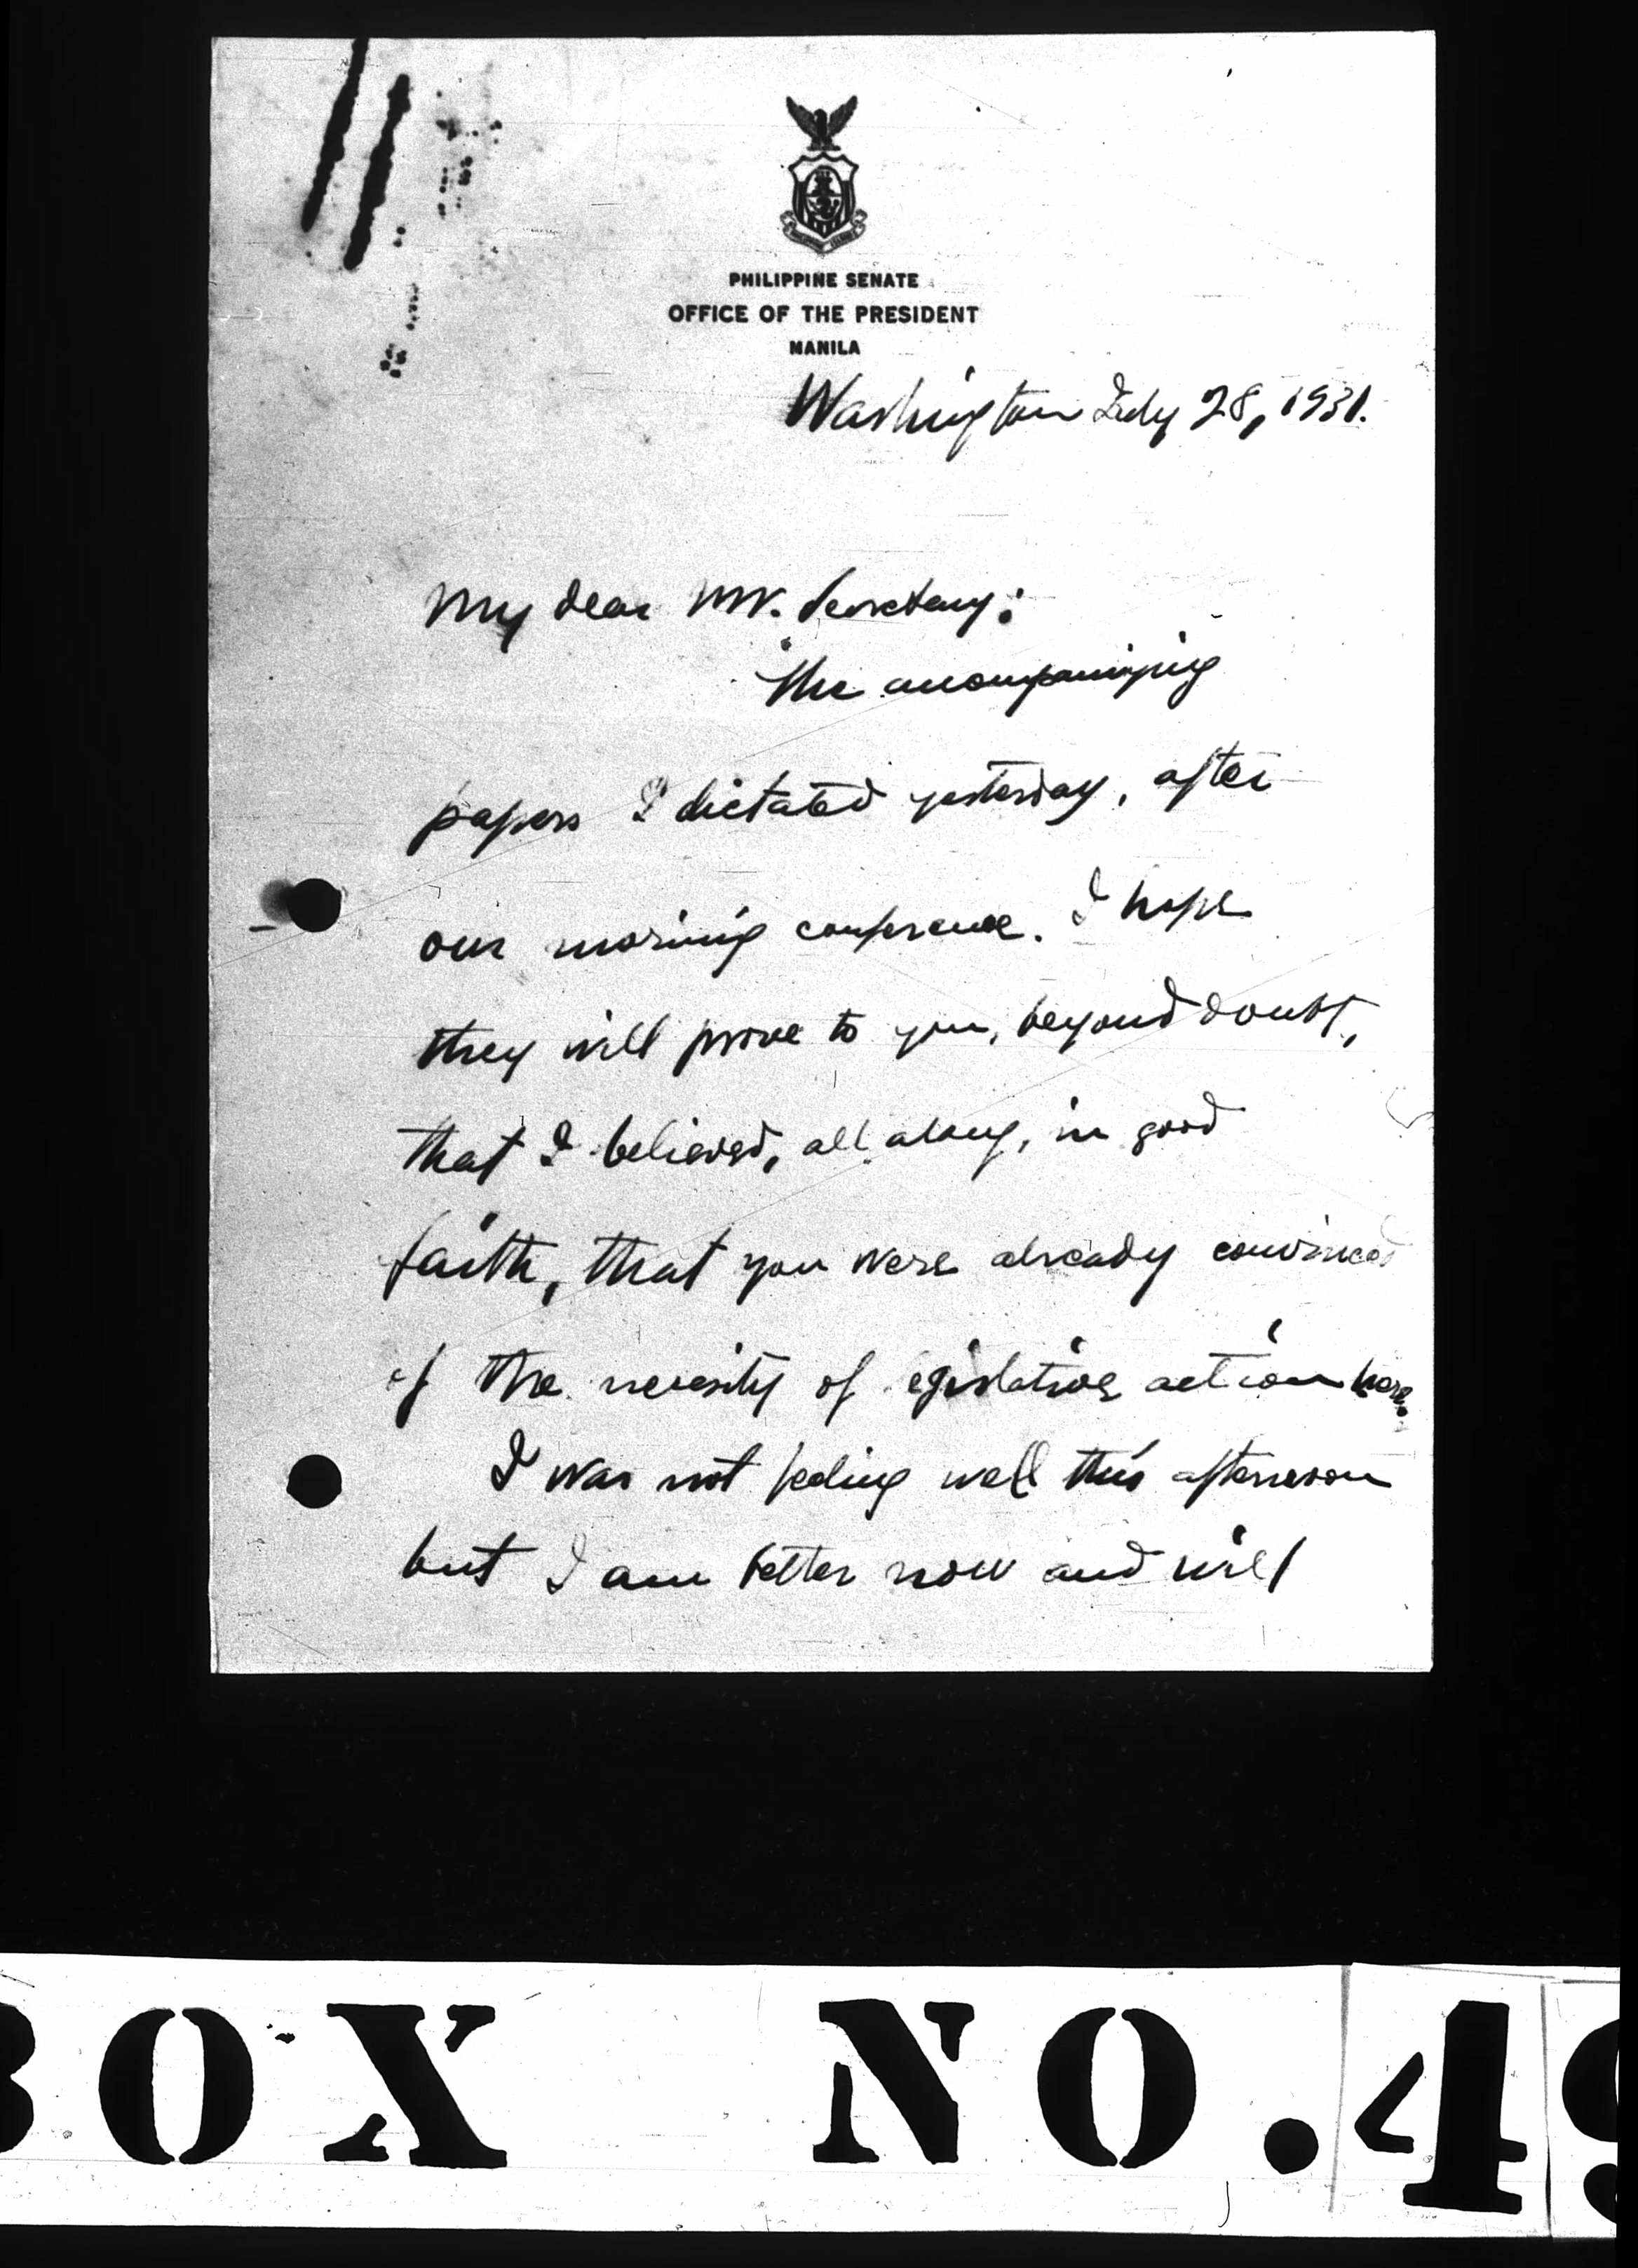 PHILIPPINE SENATE
OFFICE OF THE PRESIDENT
MANILA
Washington July 28, 1931.
My dear Mr. Secretary:
The accompanying
papers I dictated yesterday, after
our morning conference. I hope
they will prove to you, beyond doubt,
that I believed, all along, in good
faith, that you were already convinced
of the necesity of egislative action here.
I was not feeling well this afternoon
but I am better now and will
BOX NO. 49